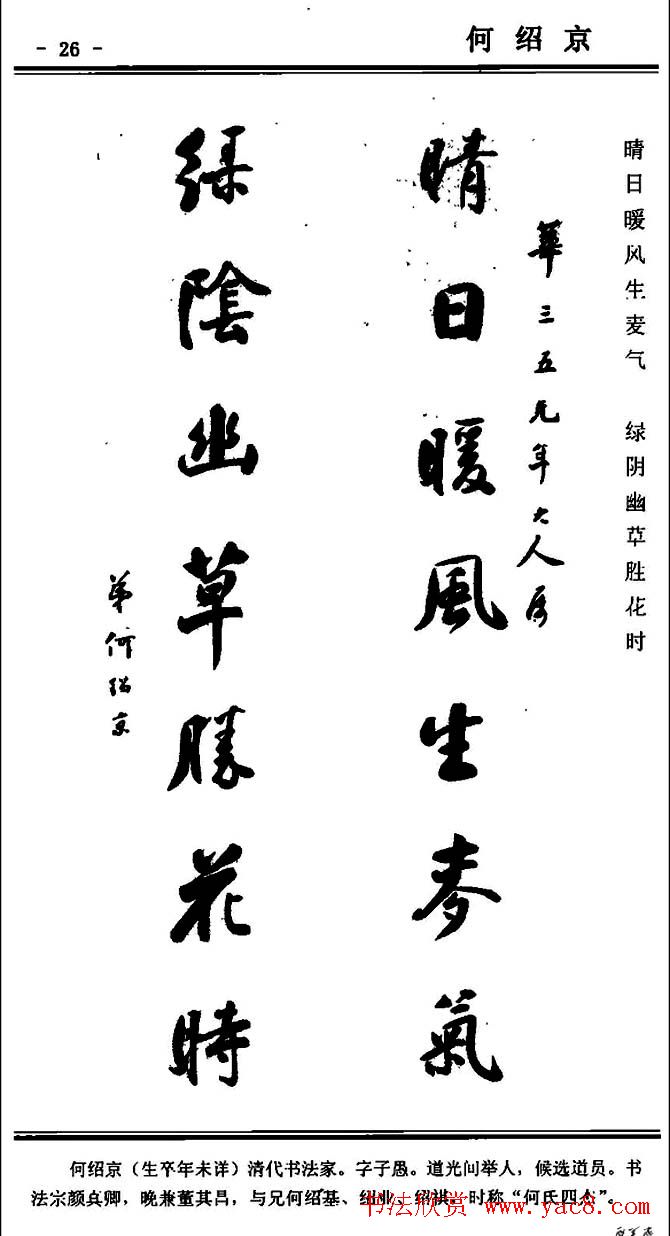 - 26 -
何绍京
晴日暖风生麦气 绿阴幽草胜花时
三五
年大人属
晴日暖風生麥氣
緑陰幽草勝花時
弟何紹京
何绍京（生卒年未详）清代书法家。字子愚。道光间举人，候选道员。书
法宗颜真卿，晚兼董其昌，与兄何绍基、绍业、绍祺，时称“何氏四杰”。
书法欣赏 www.yac8.com